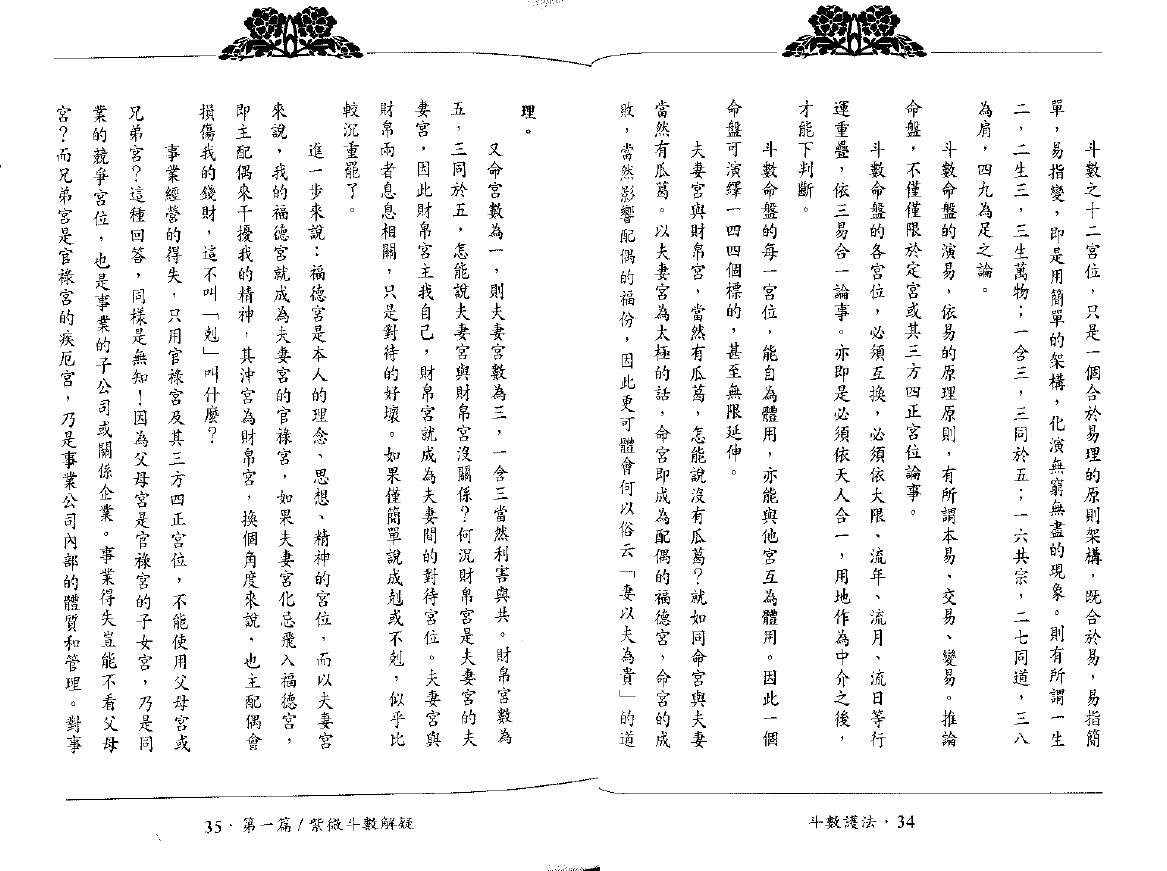 斗數之十二宮位，只是一個合於易理的原則架構，既合於易，易指簡
單，易指變，即是用簡單的架構，化演無窮無盡的現象。則有所謂一生
二，二生三，三生萬物；一含三，三同於五；一六共宗，二七同道，三八
為肩，四九為足之論。
斗數命盤的演易，依易的原理原則，有所謂本易、交易、變易。推論
命盤，不僅僅限於定宮或其三方四正宮位論事。
斗數命盤的各宮位，必須互換，必須依大限、流年、流月、流日等行
運重疊，依三易合一論事。亦即是必須依天人合一，用地作為中介之後，
才能下判斷。
斗數命盤的每一宮位，能自為體用，亦能與他宮互為體用。因此一個
命盤可演繹一四四個標的，甚至無限延伸。
夫妻宮與財帛宮，當然有瓜葛，怎能說沒有瓜葛？就如同命宮與夫妻
當然有瓜葛。以夫妻宮為太極的話，命宮即成為配偶的福德宮，命宮的成
敗，當然影響配偶的福份，因此更可體會何以俗云「妻以夫為貴」的道
斗數護法・34
理。
又命宮數為一，則夫妻宮數為三，一含三當然利害與共。財帛宮數為
五，三同於五，怎能說夫妻宮與財帛宮沒關係？何況財帛宮是夫妻宮的夫
妻宮，因此財帛宮主我自己，財帛宮就成為夫妻間的對待宮位。夫妻宮與
財帛兩者息息相關，只是對待的好壞。如果僅簡單說成剋或不剋，似乎比
較沉重罷了。
進一步來說：福德宮是本人的理念、思想、精神的宮位，而以夫妻宮
來說，我的福德宮就成為夫妻宮的官祿宮，如果夫妻宮化忌飛入福德宮，
即主配偶來干擾我的精神，其沖宮為財帛宮，換個角度來說，也主配偶會
損傷我的錢財，這不叫「剋」叫什麼？
事業經營的得失，只用官祿宮及其三方四正宮位，不能使用父母宮或
兄弟宮？這種回答，同樣是無知！因為父母宮是官祿宮的子女宮，乃是同
業的競爭宮位，也是事業的子公司或關係企業。事業得失豈能不看父母
宮？而兄弟宮是官祿宮的疾厄宮，乃是事業公司內部的體質和管理。對事
35・第一篇/紫微斗數解疑